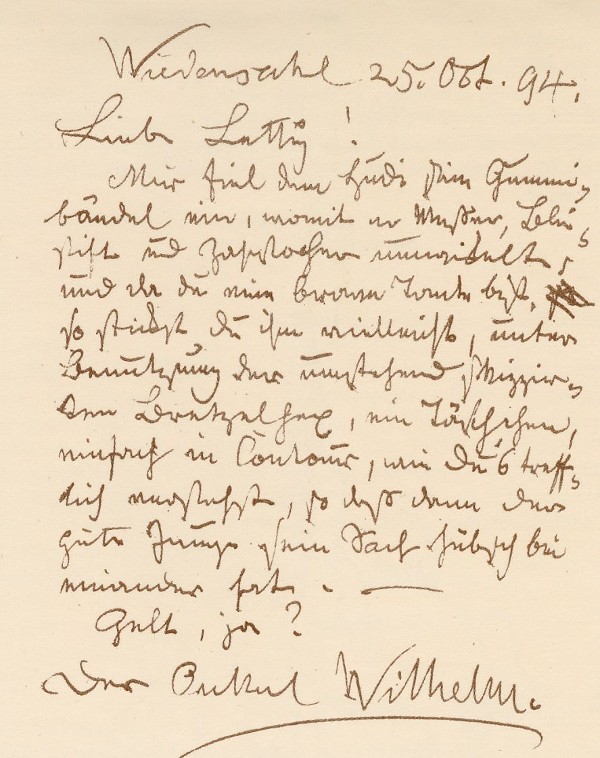 Wiedensahl 25. Oct. 94.
Liebe Letty!
Mir fiel dem Hudi sein Gummi-
bändel ein, womit er Messer, Blei-
stift und umwickelt;
und da du eine brave Tante bist,
so stickst du ihm vielleicht, unter
Benutzung der umstehend skizzir-
ten Bretzelhex, ein Täschchen,
einfach in Contour, wie du's treff-
lich verstehst, so daß dann der
gute Junge sein Sach hübsch bei
einander hat. —
Gelt, ja?
Der Onkel Wilhelm.